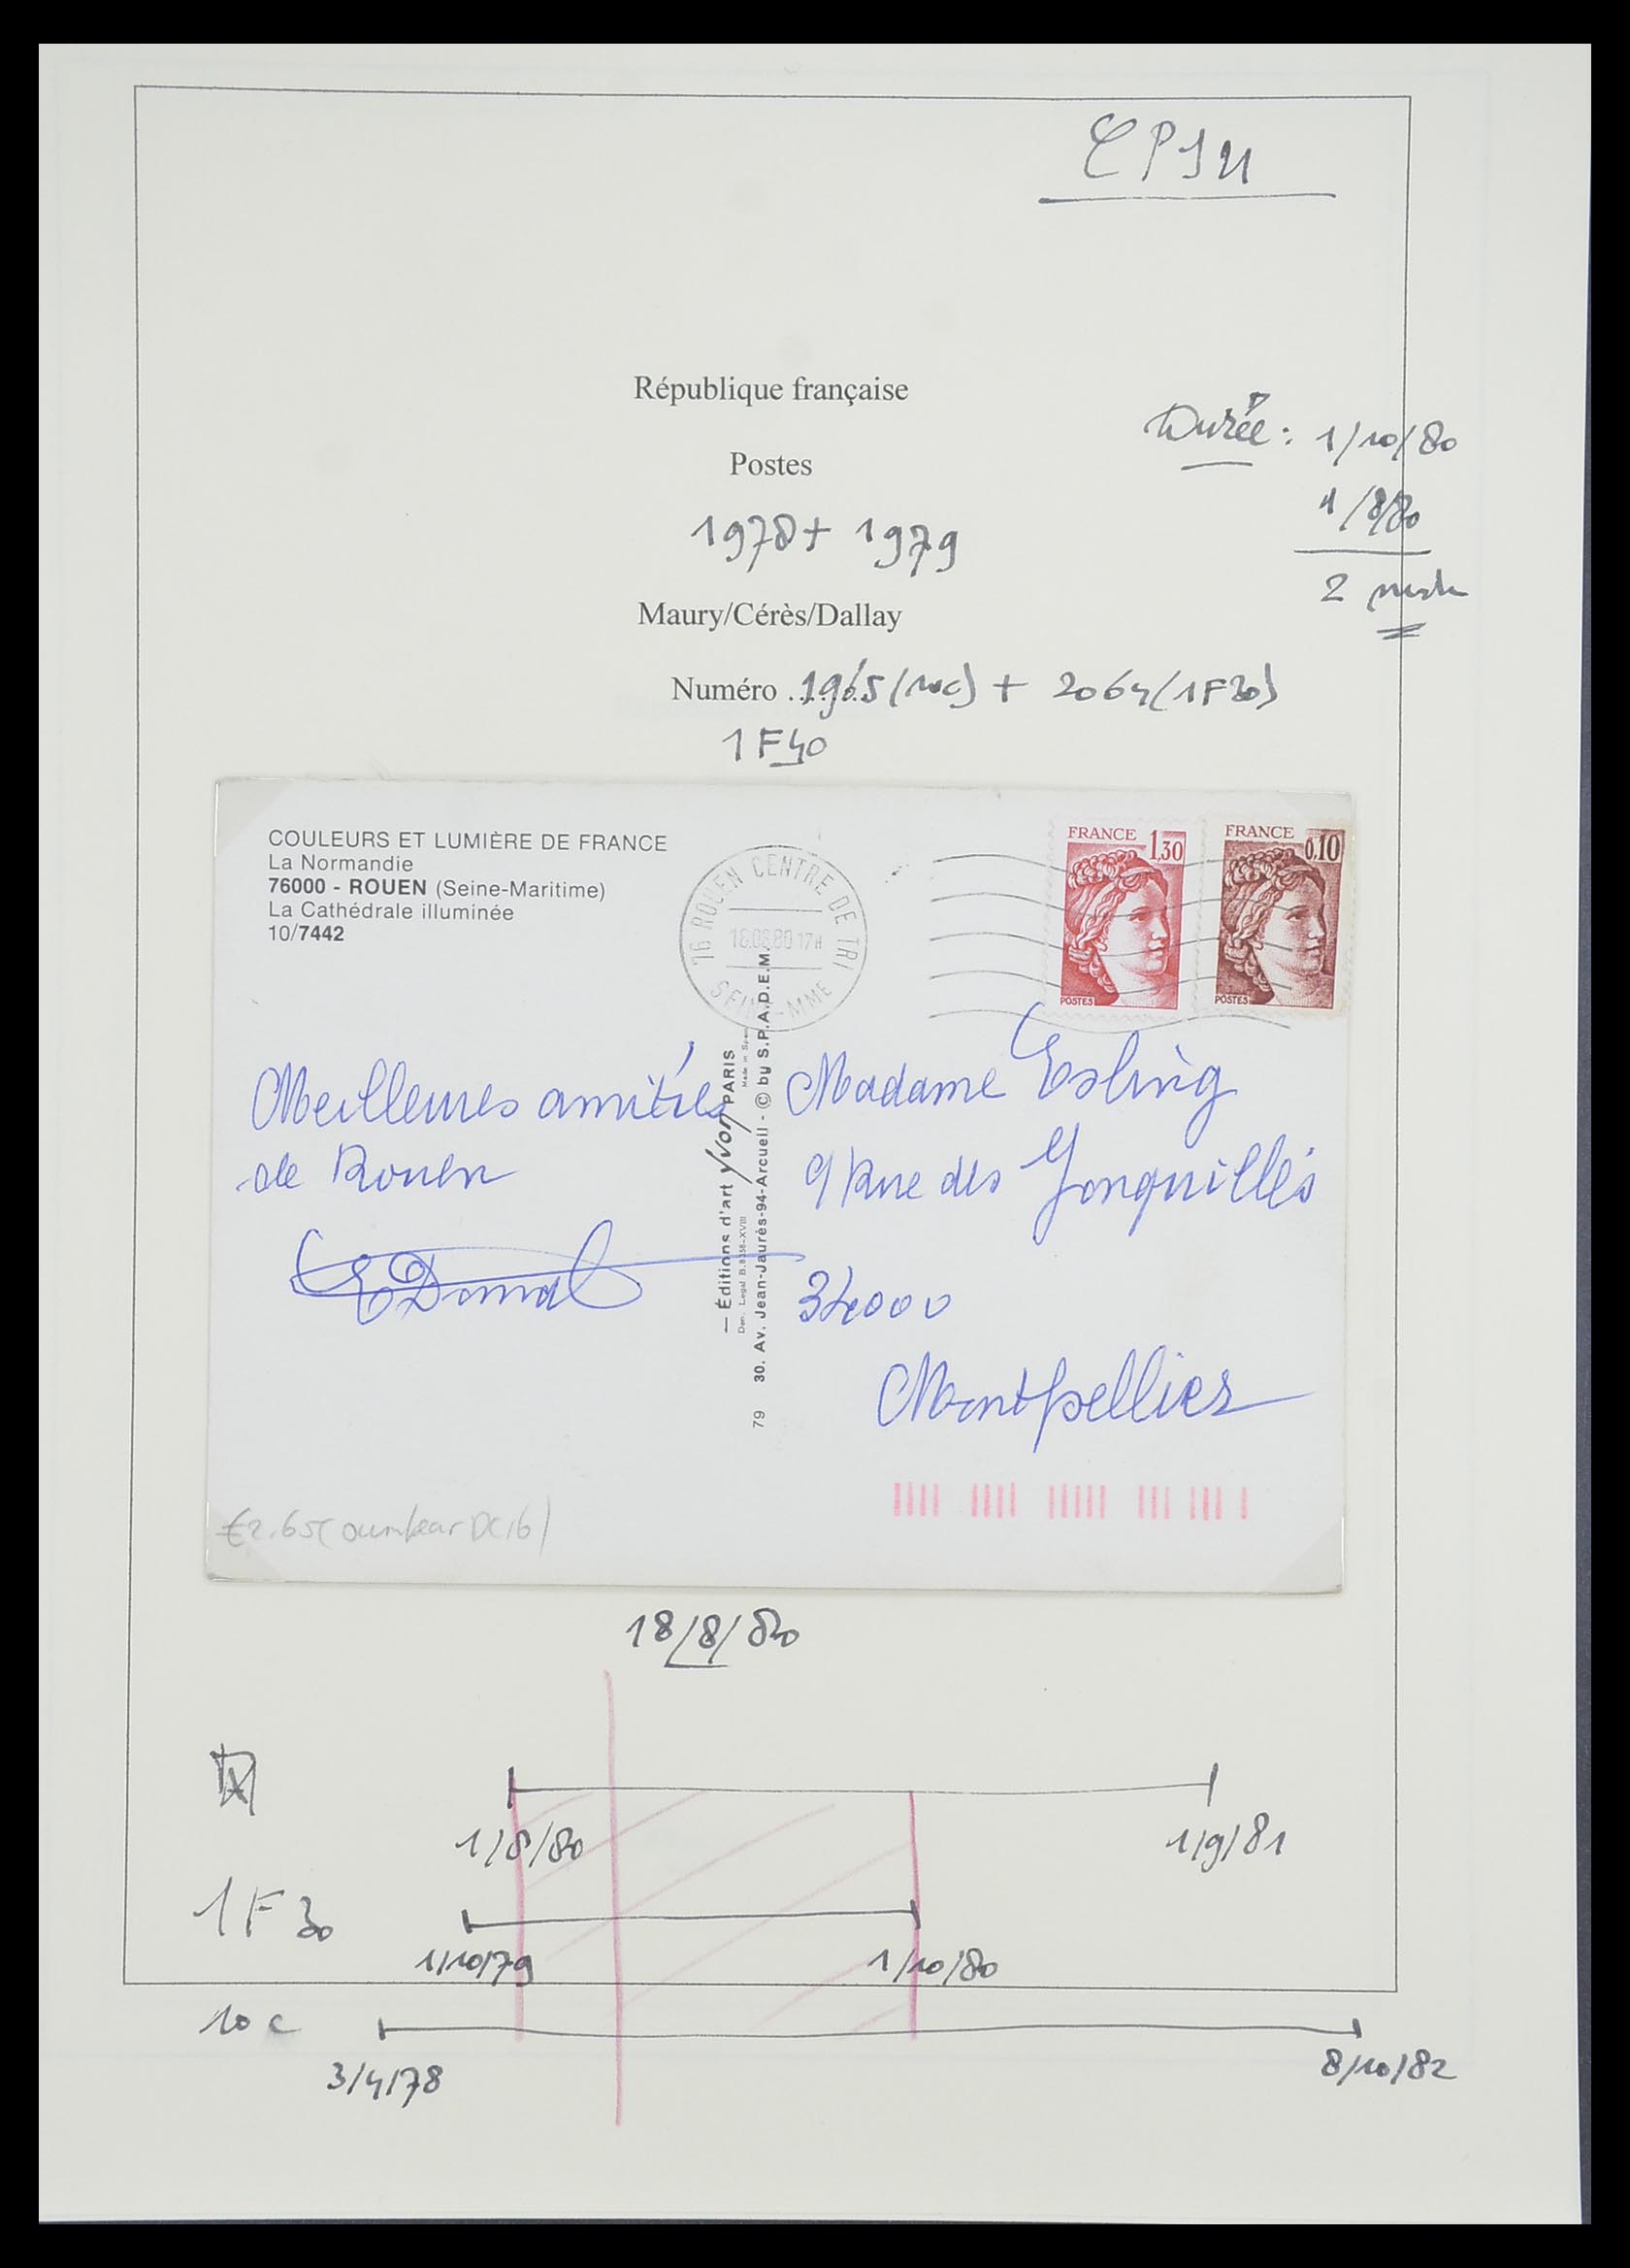 République française
Durée : 1/10/80
Postes
1/8/80
1978 + 1979
2
Maury/Cérès/Dallay
Numéro ........ 1965 (10c) + 2064 (1F30)
1F40
COULEURS ET LUMIÈRE DE FRANCE
La Normandie
76000 - ROUEN (Seine-Maritime)
La Cathédrale illuminée
10/7442
76 ROUEN CENTRE DE TRI
80 17H
SEINE-MME
FRANCE 1,30
POSTES
FRANCE 0,10
POSTES
Meilleures amitiés
de Rouen
— Éditions d'art Yvon PARIS
Made in Spain
Dep. Legal B.8358-XVIII
79 30. Av. Jean-Jaurès-94-Arcueil - © by S.P.A.D.E.M.
Madame Esling
9 Rue des Jonquilles
34000
Montpellier
€2.65
18/8/80
1/8/80
1/9/81
1F30
1/10/79
1/10/80
10 c
3/4/78
8/10/82